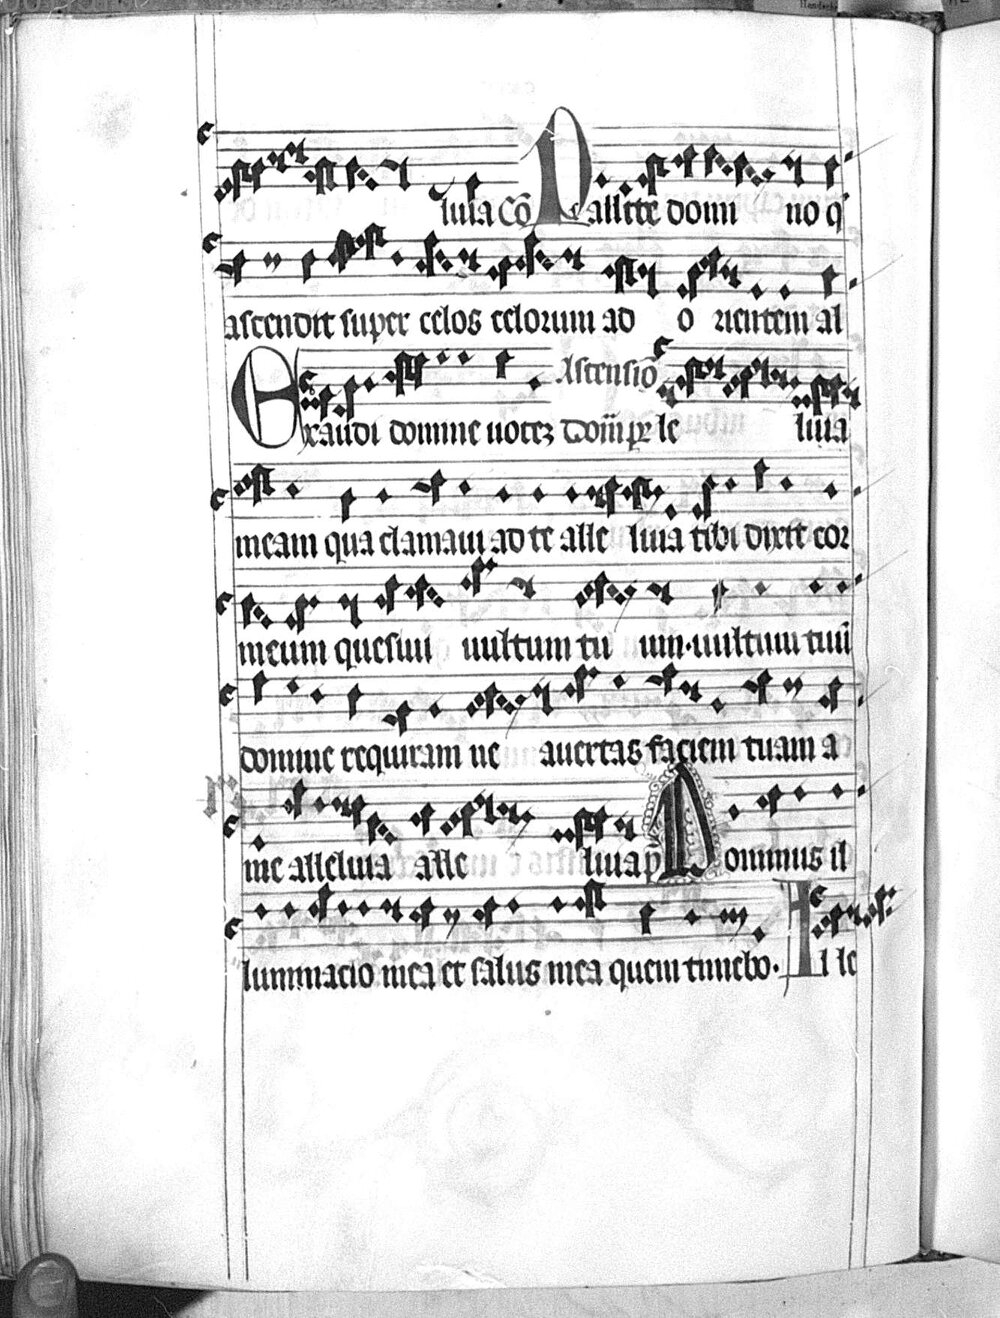 luia Cō Psallite domi no q
ascendit super celos celorum ad o rientem al
le luia Ascensiō Dom̄ p̱
Exaudi domine uocez
meam qua clamaui ad te alle luia tibi dixit cor
meum quesiui uultum tu um·uultum tuū
domine requiram ne auertas faciem tuam a
me alleluia alle luia p̄ Dominus il
luminacio mea et salus mea quem timebo· Al le